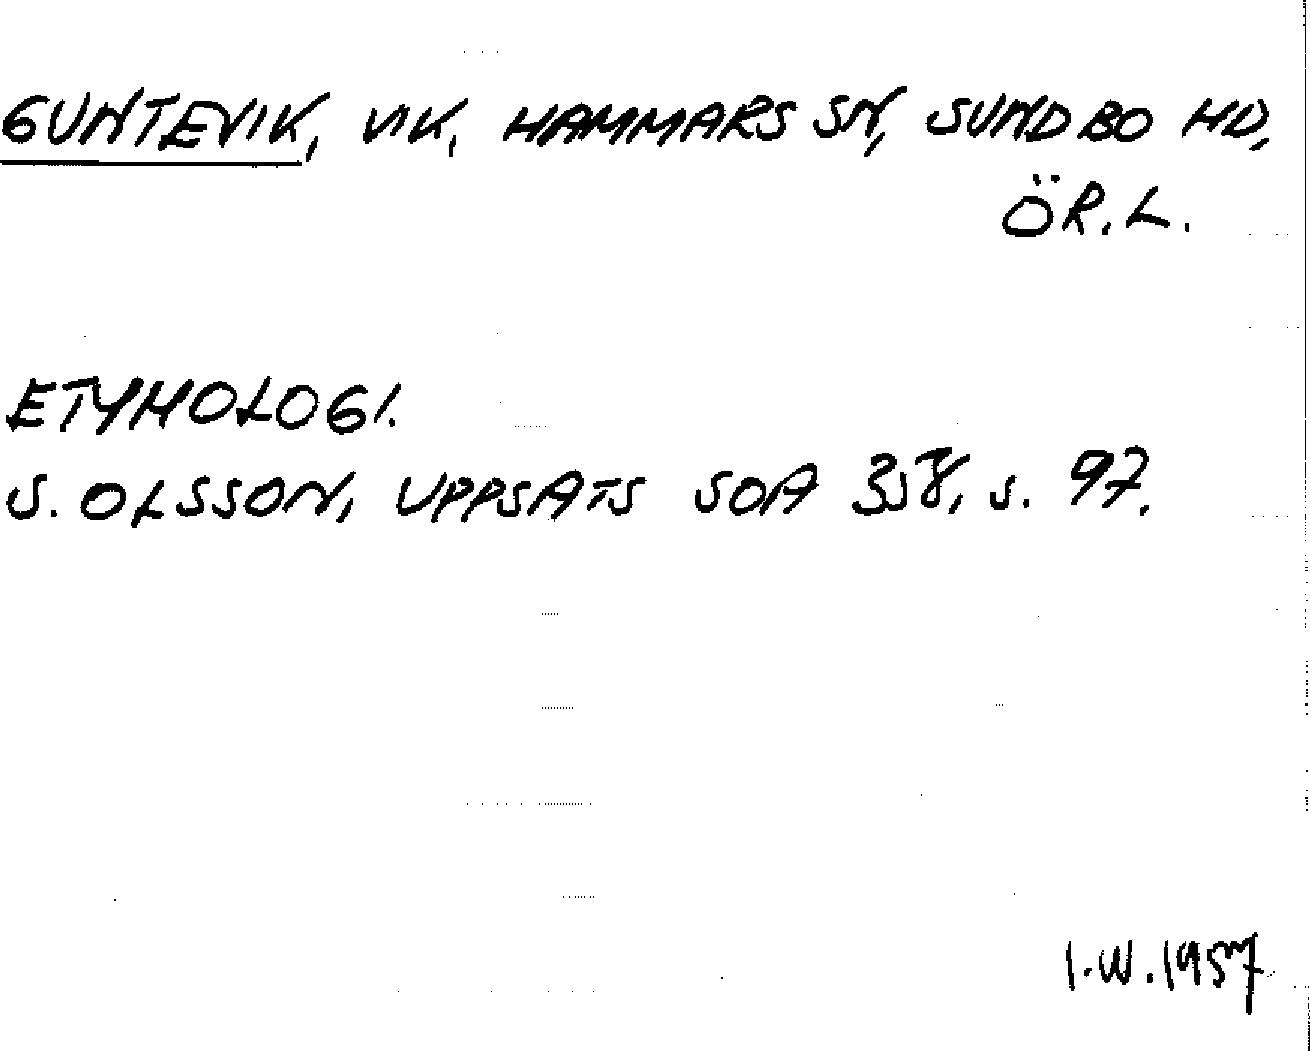 GUNTEVIK, VIK, HAMMARS SN, SUNDBO HD,
ÖR.L.
ETYMOLOGI.
S. OLSSON, UPPSATS SOA 358, s. 97.
I.W.1957